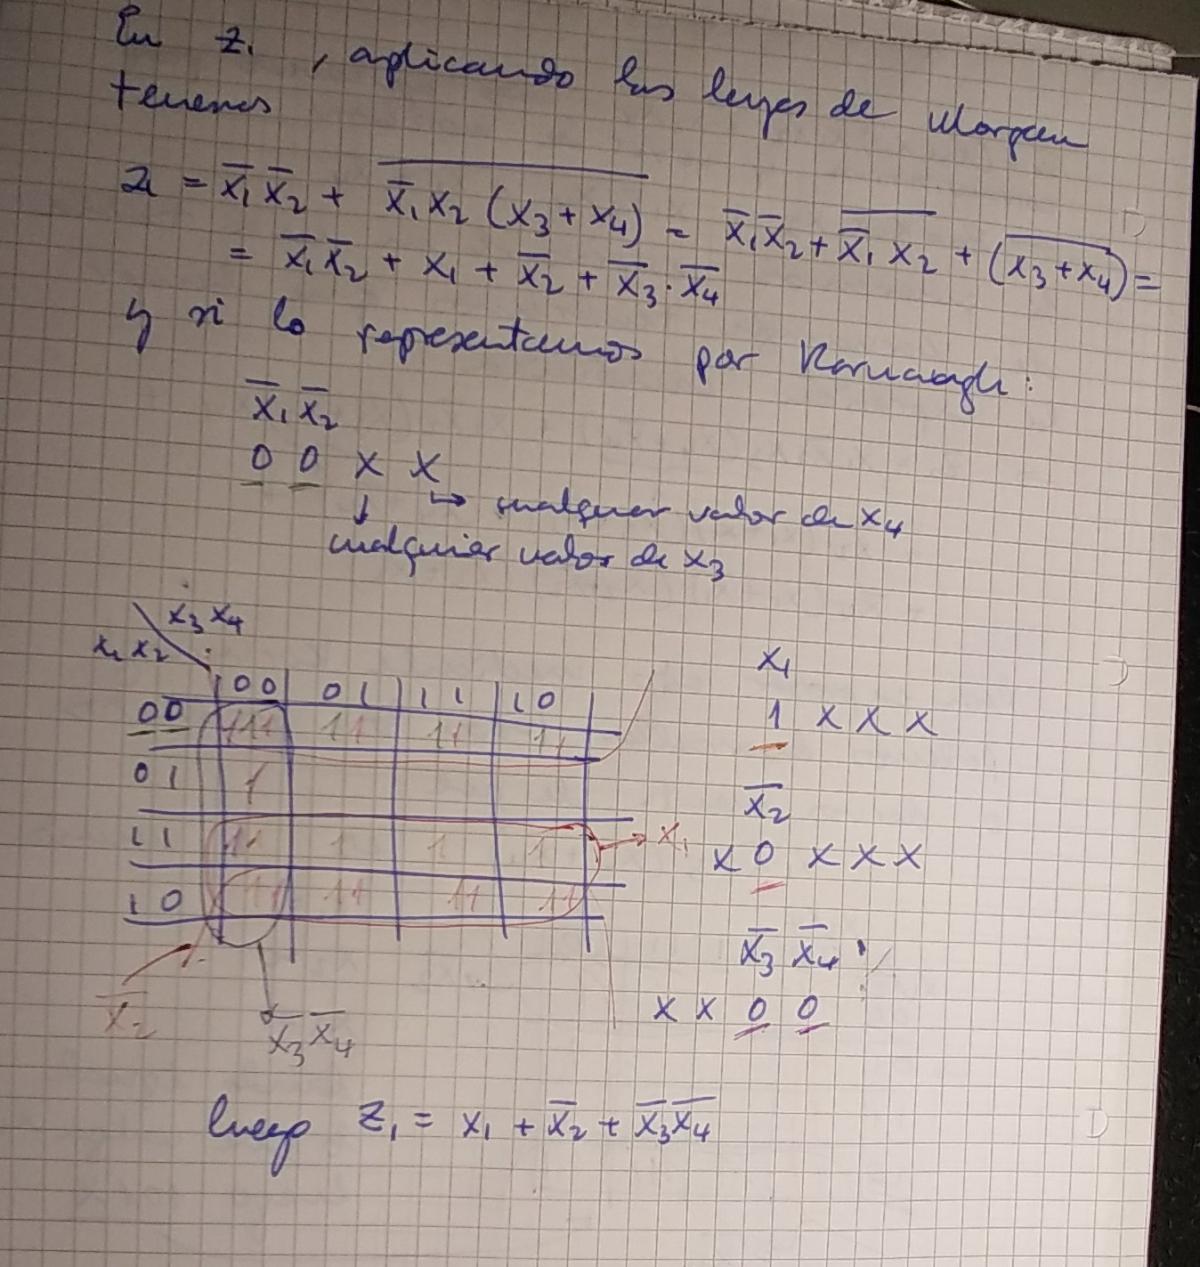 En z₁, aplicando las leyes de Morgan
tenemos
z₁ = x̅₁x̅₂ + \overline{x̅₁x₂(x₃+x₄)} = x̅₁x̅₂ + \overline{x̅₁x₂} + (\overline{x₃+x₄}) =
= x̅₁x̅₂ + x₁ + x̅₂ + x̅₃·x̅₄
y si lo representamos por Karnaugh:
x̅₁x̅₂
0 0 x x
↳ cualquier valor de x₄
↓
cualquier valor de x₃
x₃x₄
x₁x₂
00 01 11 10
00 111 11 11 11
01 1
11 11 1 1 1 → x₁
10 11 11 11 11
x̅₂
x̅₃x̅₄
x₁
1 x x x
x̅₂
x 0 x x x
x̅₃ x̅₄
x x 0 0
luego z₁ = x₁ + x̅₂ + x̅₃x̅₄